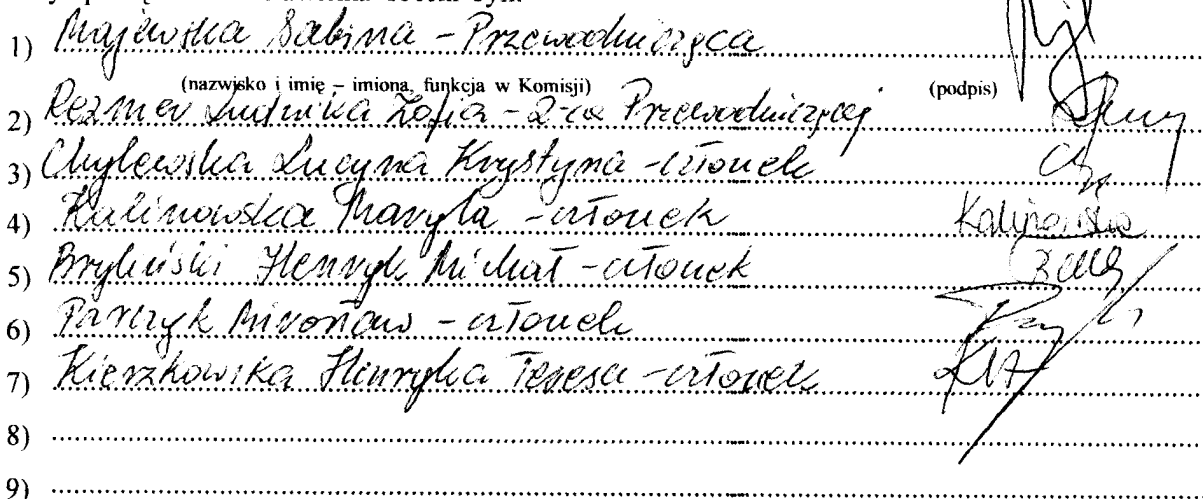 1) Majewska Sabina - Przewodnicząca
(nazwisko i imię – imiona, funkcja w Komisji) (podpis)
2) Rezmer Ludwika Zofia - Z-ca Przewodniczącej
3) Chylewska Lucyna Krystyna - członek
4) Kalinowska Maryla - członek Kalinowska
5) Bryliński Henryk Michał - członek
6) Parczyk Mirosław - członek
7) Kierzkowska Henryka Teresa - członek
8)
9)